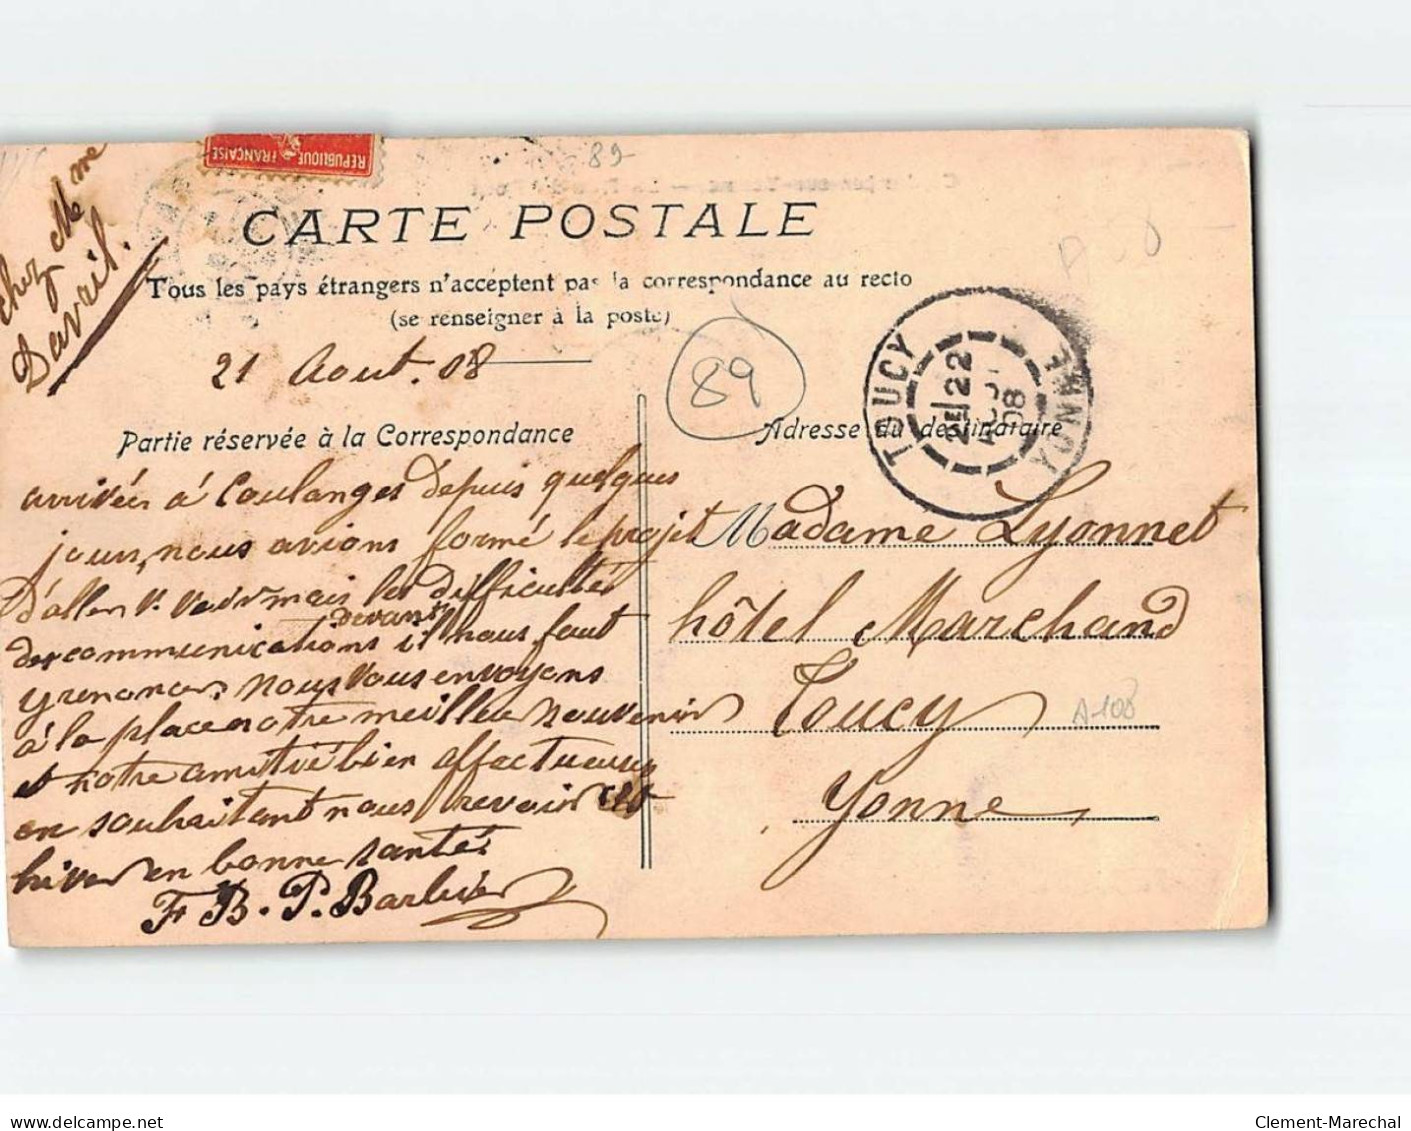 chez Mme
Davail.
RÉPUBLIQUE FRANÇAISE
89
CARTE POSTALE
Tous les pays étrangers n'acceptent pas la correspondance au recto
(se renseigner à la poste)
21 Aout. 08
89
TOUCY
YONNE
2E 22
08
Partie réservée à la Correspondance
Adresse du destinataire
arrivées à Coulanges depuis quelques
jours, nous avions formé le projet
d'aller v. voir mais les difficultés
des communications devant il nous faut
y renoncer. nous vous envoyons
à la place notre meilleur souvenir
et notre amitié bien affectueuse
en souhaitant nous revoir cet
hiver en bonne santé.
F B. P. Barbier
Madame Lyonnet
hôtel Marchand
Toucy
A108
Yonne
delcampe.net
Clement-Marechal